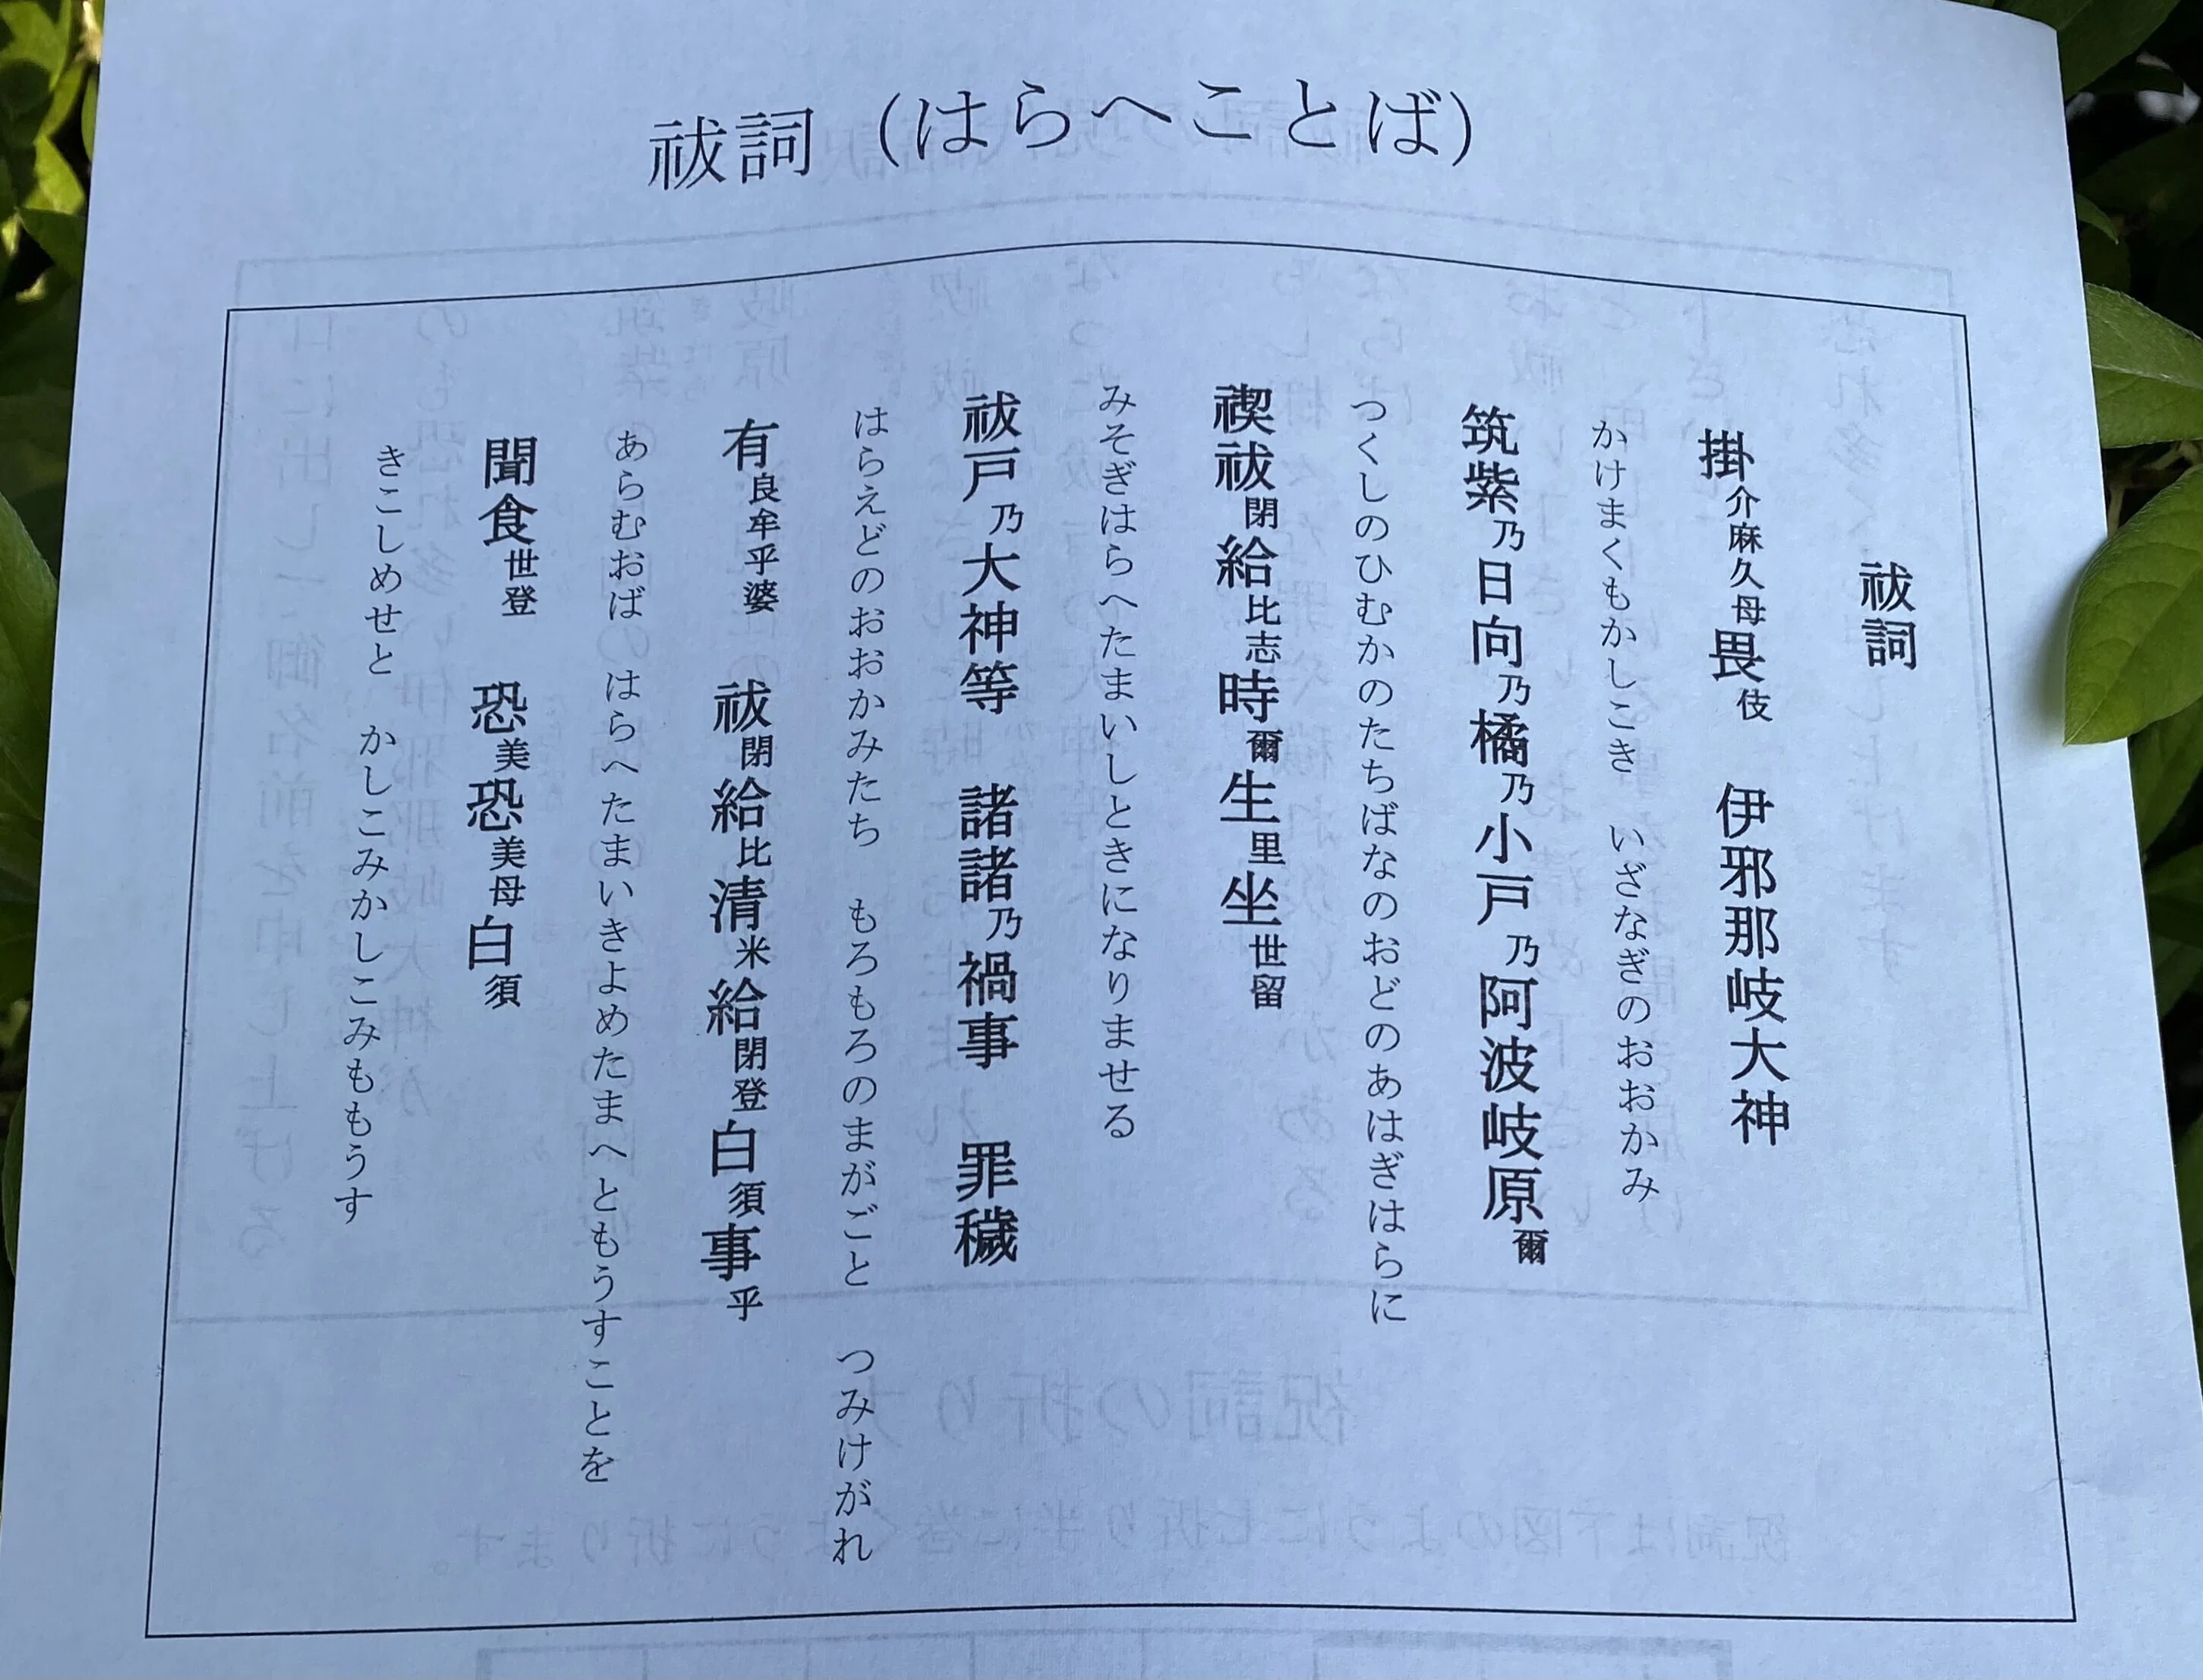 祓詞（はらへことば）
祓詞
掛介麻久母畏伎　伊邪那岐大神
かけまくもかしこき　いざなぎのおおかみ
筑紫乃日向乃橘乃小戸乃阿波岐原爾
つくしのひむかのたちばなのおどのあはぎはらに
禊祓閉給比志時爾生里坐世留
みそぎはらへたまいしときになりませる
祓戸乃大神等　諸諸乃禍事　罪穢
はらえどのおおかみたち　もろもろのまがごと　つみけがれ
有良牟乎婆　祓閉給比清米給閉登白須事乎
あらむおば　はらへたまいきよめたまへともうすことを
聞食世登　恐美恐美母白須
きこしめせと　かしこみかしこみももうす